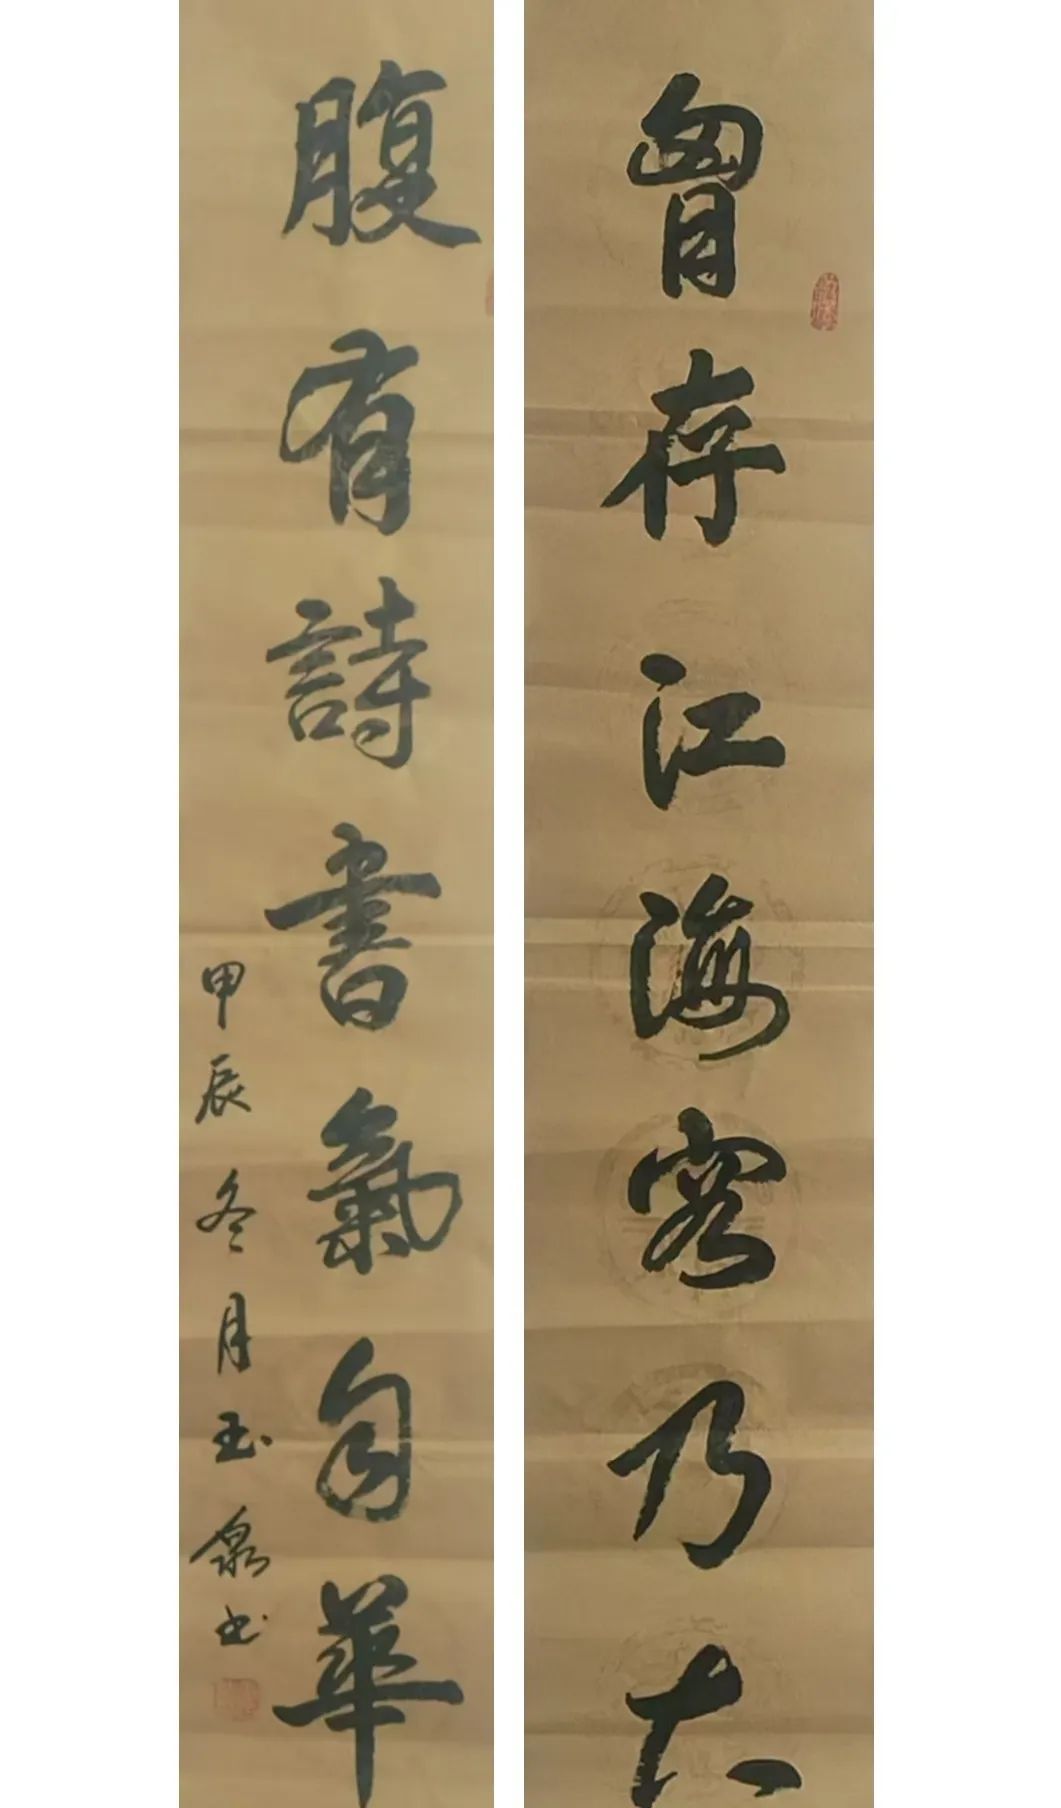 胷存江海容乃大
腹有詩書氣自華
甲辰冬月玉泉书